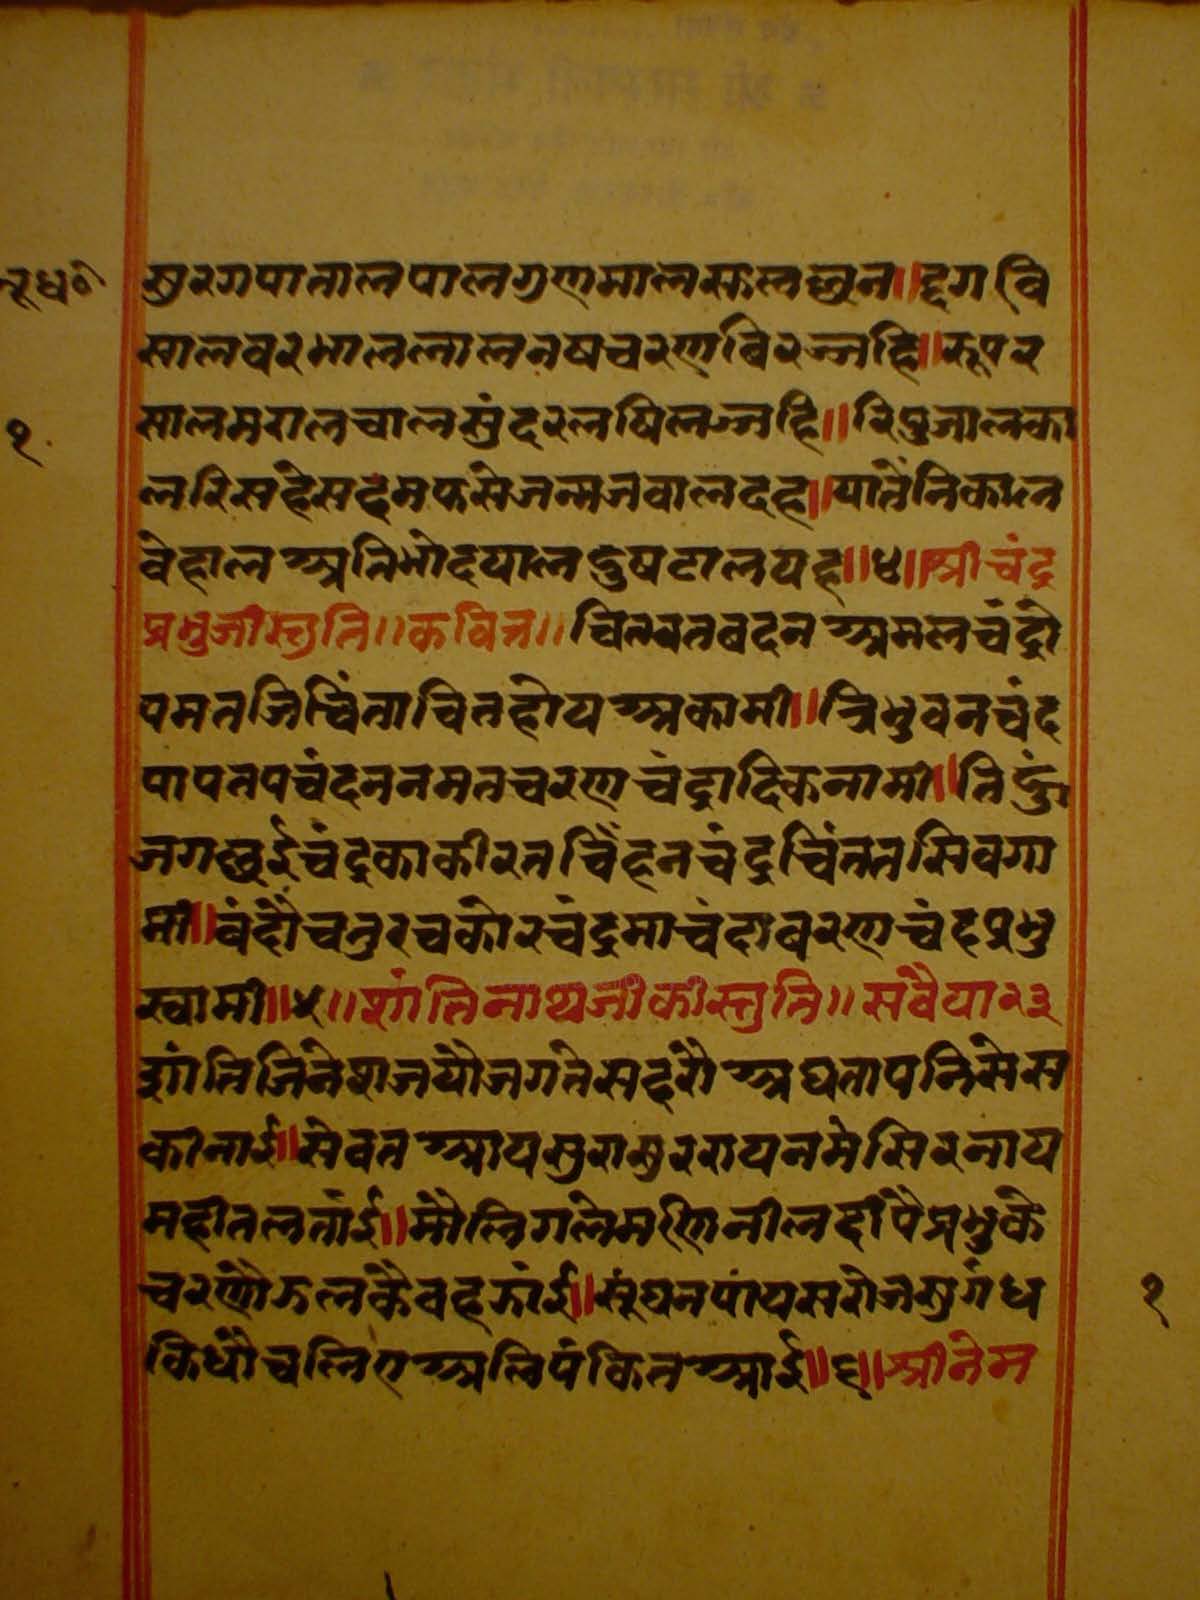 भूध०
सुरगपातालपालगुणमालसकलछन॥दृगवि
१
सालवरभाललालनषचरणबिरज्जहि॥रूपर
सालमरालचालसुंदरलषिलज्जहि॥रिपुजालका
लरिसहेसहमफसेजन्मजवालदह॥यातैनिकाल
वेहालअतिभोदयालदुषटालयह॥४॥श्रीचंद्र
प्रभुजीस्तुति॥कवित्त॥चितवतबदनअमलचंद्रो
पमतजिचिंताचितहोयअकामी॥त्रिभुवनचंद
पापतपचंदननमतचरणचंद्रादिकनामी॥तिहुं
जगछईचंद्रकाकीरतचिंहनचंद्रचिंततसिवगा
मी॥बंदौंचतुरचकोरचंद्रमाचंदाबरणचंदप्रभु
स्वामी॥५॥शांतिनाथजीकीस्तुति॥सवैया२३
शांतिजिनेशजयौजगतेसहरौअघतापनिसेस
कीनाई॥सेवतआयसुरासुररायनमेसिरनाय
महीतलतांई॥मौलिगलेमणिनीलदीपैप्रभुके
चरणौझलकैवहझांई॥सूंघनपांयसरोजसुगंध
१
किधौंचलिएअलिपंकितआई॥६॥श्रीनेम